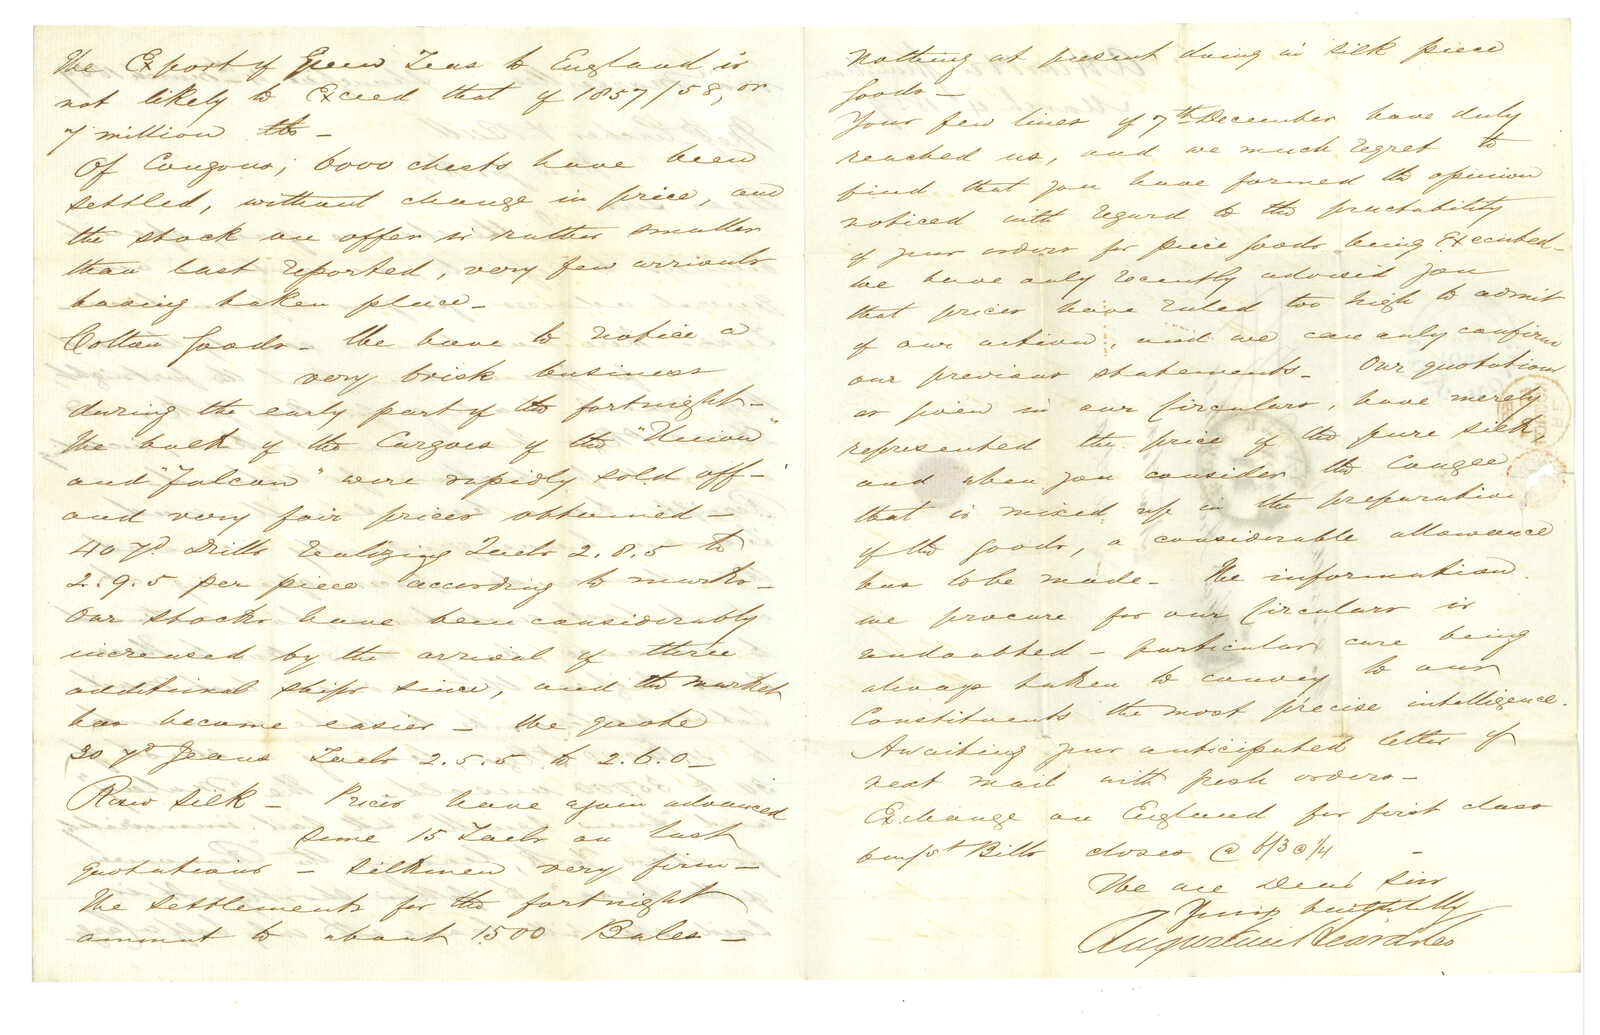 The Export of Green Teas to England is
not likely to Exceed that of 1857/58, or
7 million lbs -
Of Congous; 6000 chests have been
settled, without change in price, and
the stock on offer is rather smaller
than last reported, very few arrivals
having taken place -
Cotton Goods - We have to notice a
very brisk business
during the early part of the fortnight -
The bulk of the Cargoes of the "Union"
and "Falcon" were rapidly sold off -
and very fair prices obtained -
40 yd Drills realizing Taels 2.8.5 to
2.9.5 per piece according to marks -
Our stocks have been considerably
increased by the arrival of three
additional ships since, and the market
has become easier - We quote
30 yd Jeans Taels 2.5.5 to 2.6.0 -
Raw Silk - Prices have again advanced
some 15 Taels on last
quotations - Silkmen very firm -
The settlements for the fortnight
amount to about 1500 Bales -
Nothing at present doing in silk piece
Goods -
Your few lines of 7th December have duly
reached us, and we much regret to
find that you have formed the opinion
noticed with regard to the practability
of your orders for piece goods being Executed -
We have only recently advised you
that prices have ruled too high to admit
of our action, and we can only confirm
our previous statements - Our quotations
as given in our Circulars, have merely
represented the price of the pure silk,
and when you consider the Congee
that is mixed up in the preparation
of the goods, a considerable allowance
has to be made - The information
we procure for our Circulars is
undoubted - particular care being
always taken to convey to our
Constituents the most precise intelligence.
Awaiting your anticipated letter of
next mail with fresh orders -
Exchange on England for first class
6 m/st Bills closes @ 6/3 @ 1/4 -
We are Dear Sirs
Yours faithfully
Augustine Heard & Co